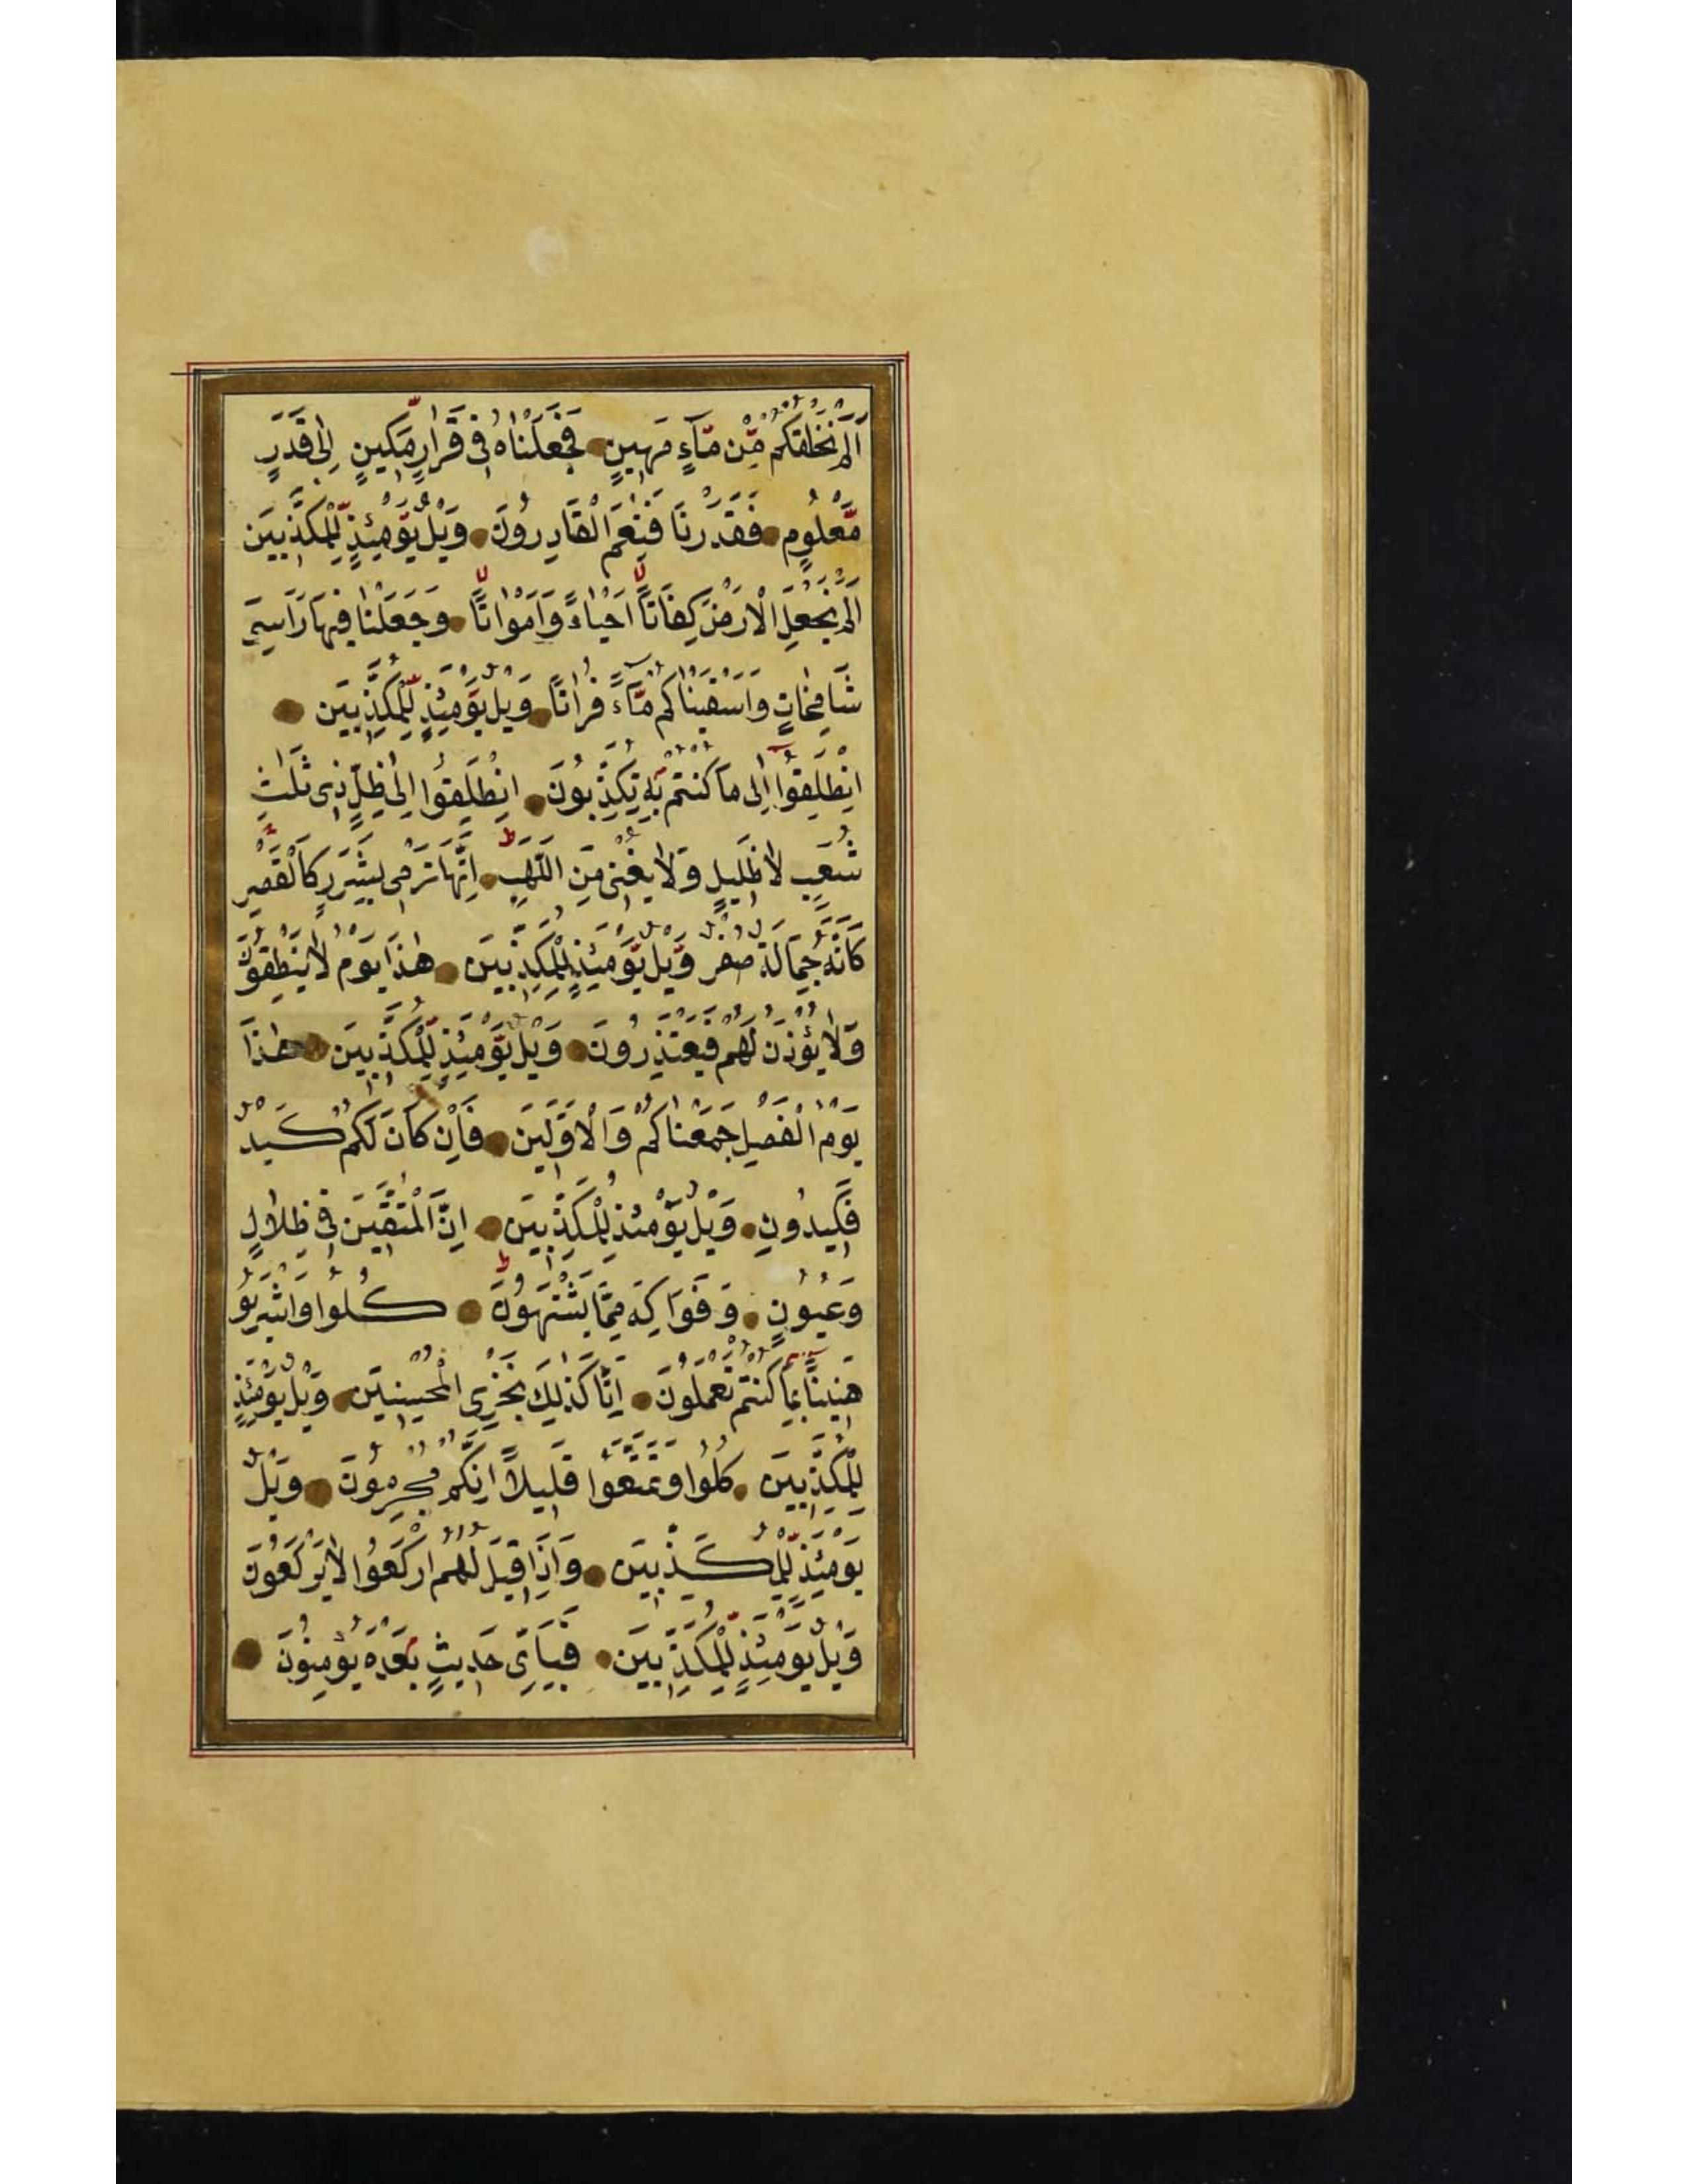 اَلَمْ نَخْلُقْكُمْ مِّنْ مَّآءٍ مَهِينٍ فَجَعَلْنَاهُ فِى قَرَارٍ مَّكِينٍ اِلٰى قَدَرٍ
مَّعْلُومٍ فَقَدَرْنَا فَنِعْمَ الْقَادِرُونَ وَيْلٌ يَّوْمَئِذٍ لِّلْمُكَذِّبِينَ
اَلَمْ نَجْعَلِ الْاَرْضَ كِفَاتًا اَحْيَاءً وَاَمْوَاتًا وَجَعَلْنَا فِيهَا رَوَاسِىَ
شَامِخَاتٍ وَاَسْقَيْنَاكُمْ مَّآءً فُرَاتًا وَيْلٌ يَّوْمَئِذٍ لِّلْمُكَذِّبِينَ
اِنْطَلِقُوٓا اِلٰى مَا كُنْتُمْ بِهٖ تُكَذِّبُونَ اِنْطَلِقُوٓا اِلٰى ظِلٍّ ذِى ثَلٰثِ
شُعَبٍ لَا ظَلِيلٍ وَلَا يُغْنِى مِنَ اللَّهَبِ اِنَّهَا تَرْمِى بِشَرَرٍ كَالْقَصْرِ
كَاَنَّهُ جِمَالَةٌ صُفْرٌ وَيْلٌ يَّوْمَئِذٍ لِّلْمُكَذِّبِينَ هٰذَا يَوْمُ لَا يَنْطِقُونَ
وَلَا يُؤْذَنُ لَهُمْ فَيَعْتَذِرُونَ وَيْلٌ يَّوْمَئِذٍ لِّلْمُكَذِّبِينَ هٰذَا
يَوْمُ الْفَصْلِ جَمَعْنَاكُمْ وَالْاَوَّلِينَ فَاِنْ كَانَ لَكُمْ كَيْدٌ
فَكِيدُونِ وَيْلٌ يَوْمَئِذٍ لِلْمُكَذِّبِينَ اِنَّ الْمُتَّقِينَ فِى ظِلَالٍ
وَعُيُونٍ وَفَوَاكِهَ مِمَّا يَشْتَهُونَ كُلُوا وَاشْرَبُو
هَنِيئًا بِمَا كُنْتُمْ تَعْمَلُونَ اِنَّا كَذٰلِكَ نَجْزِى الْمُحْسِنِينَ وَيْلٌ يَوْمَئِذٍ
لِلْمُكَذِّبِينَ كُلُوا وَتَمَتَّعُوا قَلِيلًا اِنَّكُمْ مُجْرِمُونَ وَيْلٌ
يَوْمَئِذٍ لِّلْمُكَذِّبِينَ وَاِذَا قِيلَ لَهُمُ ارْكَعُوا لَا يَرْكَعُونَ
وَيْلٌ يَوْمَئِذٍ لِّلْمُكَذِّبِينَ فَبِاَىِّ حَدِيثٍ بَعْدَهُ يُؤْمِنُونَ